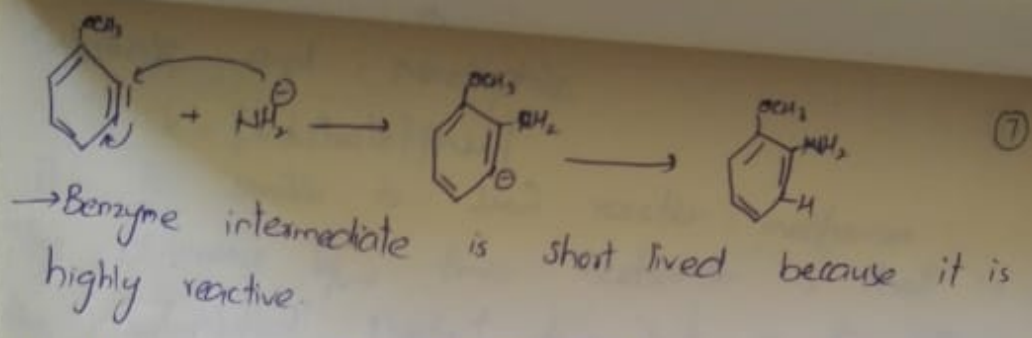 OCH₃ OCH₃ OCH₃
+ NH₂⊖ → NH₂ ⊖ → NH₂ H ⑦
→Benzyme intermediate is short lived because it is
highly reactive.